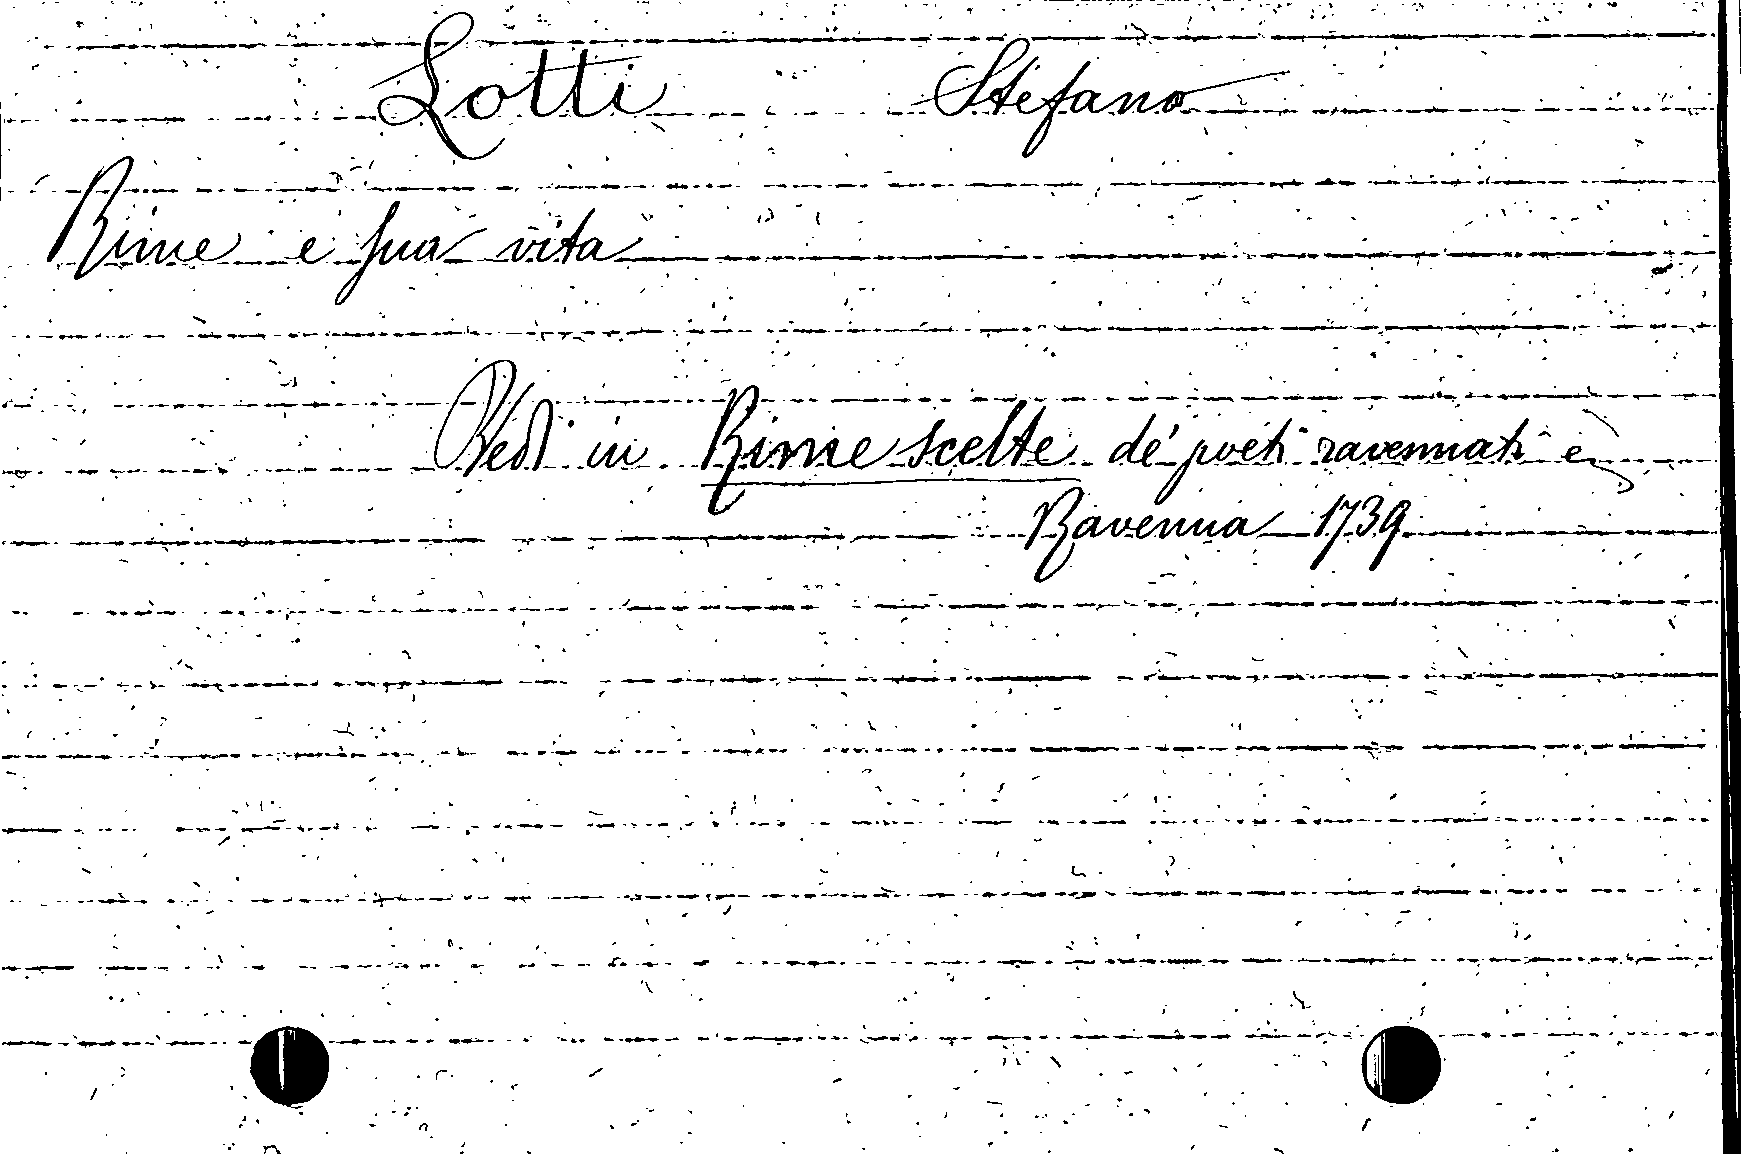 Lotti Stefano
Rime e sua vita
Vedi in Rime scelte de' poeti ravennati e
Ravenna 1739